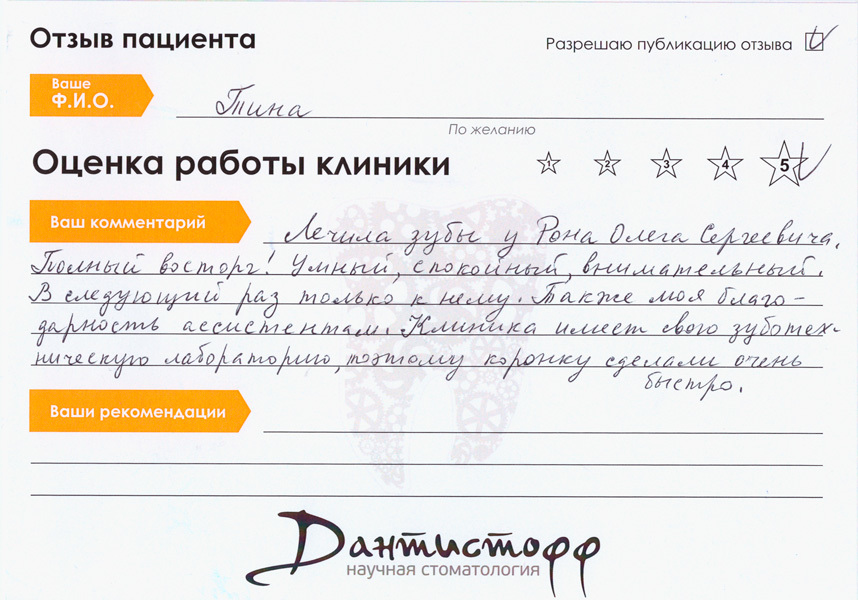 Отзыв пациента
Разрешаю публикацию отзыва
Ваше
Ф.И.О.
Тина
По желанию
Оценка работы клиники
1 2 3 4 5
Ваш комментарий
Лечила зубы у Рона Олега Сергеевича.
Полный восторг! Умный, спокойный, внимательный.
В следующий раз только к нему. Также моя благо-
дарность ассистентам. Клиника имеет свою зуботех-
ническую лабораторию, поэтому коронку сделали очень
быстро.
Ваши рекомендации
Дантистофф
научная стоматология